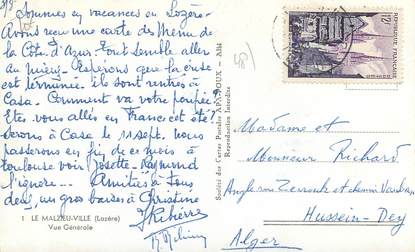 Sommes en vacances en Lozère
Avons reçu une carte des Menu de
la Côte d'Azur. Tout semble aller
au mieux. Espérons que la crise
est terminée. ils sont rentrés à
Casa. Comment va votre
Êtes vous allés en France cet été
serons à Casa le 11 sept. Nous
passerons en fin de ce mois à
toulouse voir Josette - Raymond
l'ignore... Amitiés à tous
deux, un gros baiser à Christine
1 LE MALZIEU-VILLE (Lozère)
Vue Générale
Société des Cartes Postales APA-POUX - Albi
Reproduction Interdite
REPUBLIQUE FRANÇAISE
12F
Madame et
Monsieur Richard
Angle rue Zerrouk et chemin Vauban
Hussein-Dey
Alger